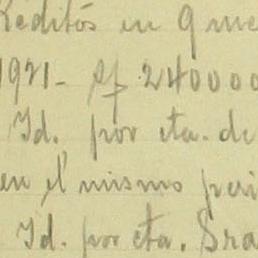 Réditos en 9 me
1921- Sf 240000
Id. por cta. de
en el mismo peri
Id. por cta. Sra